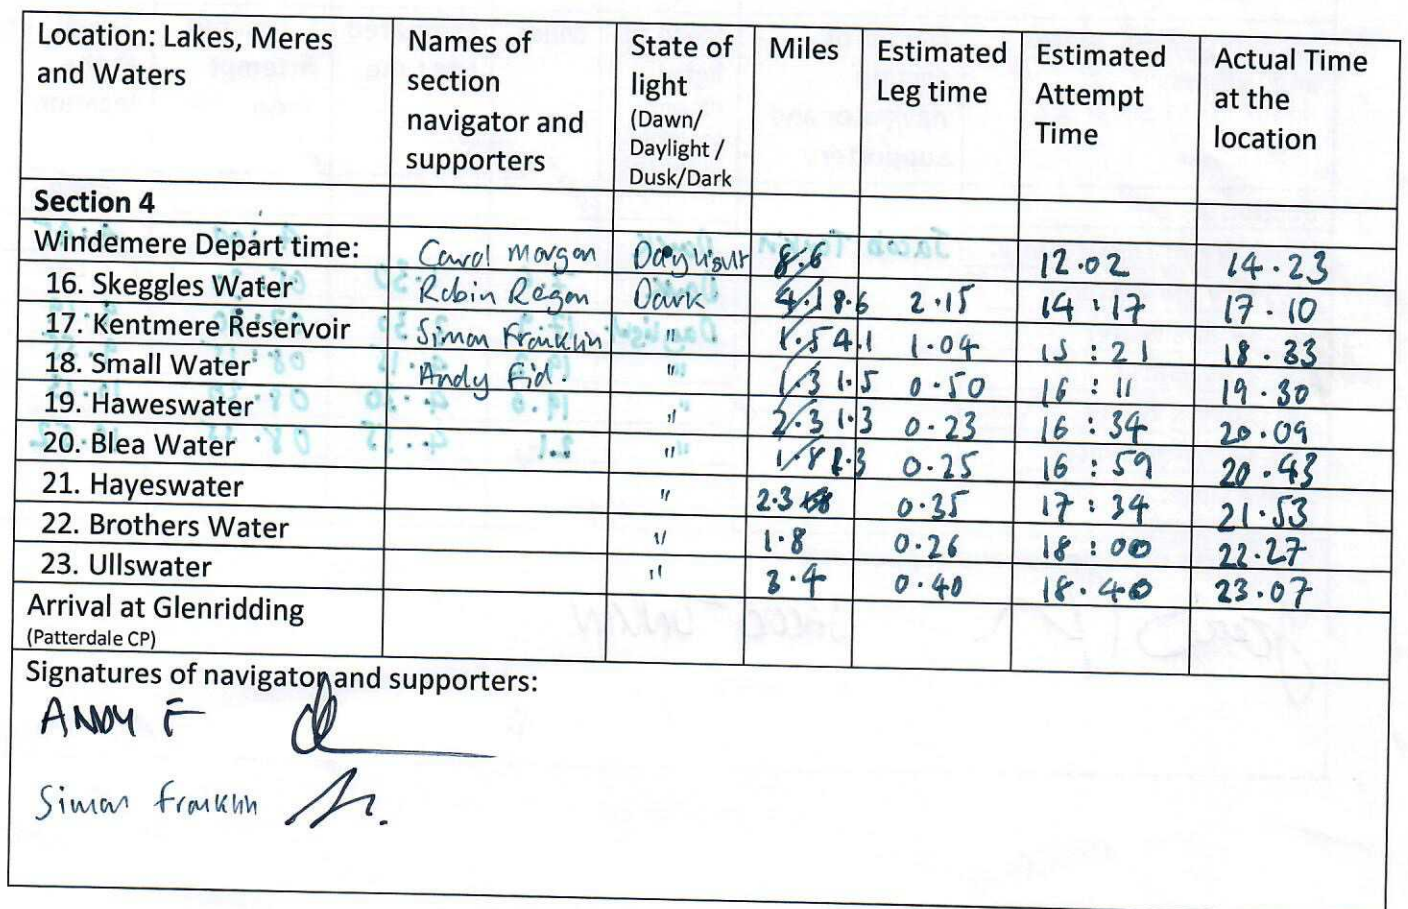 Location: Lakes, Meres and Waters | Names of section navigator and supporters | State of light (Dawn/ Daylight / Dusk/Dark | Miles | Estimated Leg time | Estimated Attempt Time | Actual Time at the location
Section 4
Windemere Depart time: Carol Morgan Daylight 8.6 12.02 14.23
16. Skeggles Water Robin Regan Dark 4.1 8.6 2.15 14:17 17.10
17. Kentmere Reservoir Simon Franklin " 1.5 4.1 1.04 15:21 18.33
18. Small Water Andy " 1.3 1.5 0.50 16:11 19.30
19. Haweswater " 2.3 1.3 0.23 16:34 20.09
20. Blea Water " 1.8 0.25 16:59 20.43
21. Hayeswater " 2.3 0.35 17:34 21.53
22. Brothers Water " 1.8 0.26 18:00 22.27
23. Ullswater " 3.4 0.40 18.40 23.07
Arrival at Glenridding
(Patterdale CP)
Signatures of navigator and supporters:
ANDY F
Simon Franklin